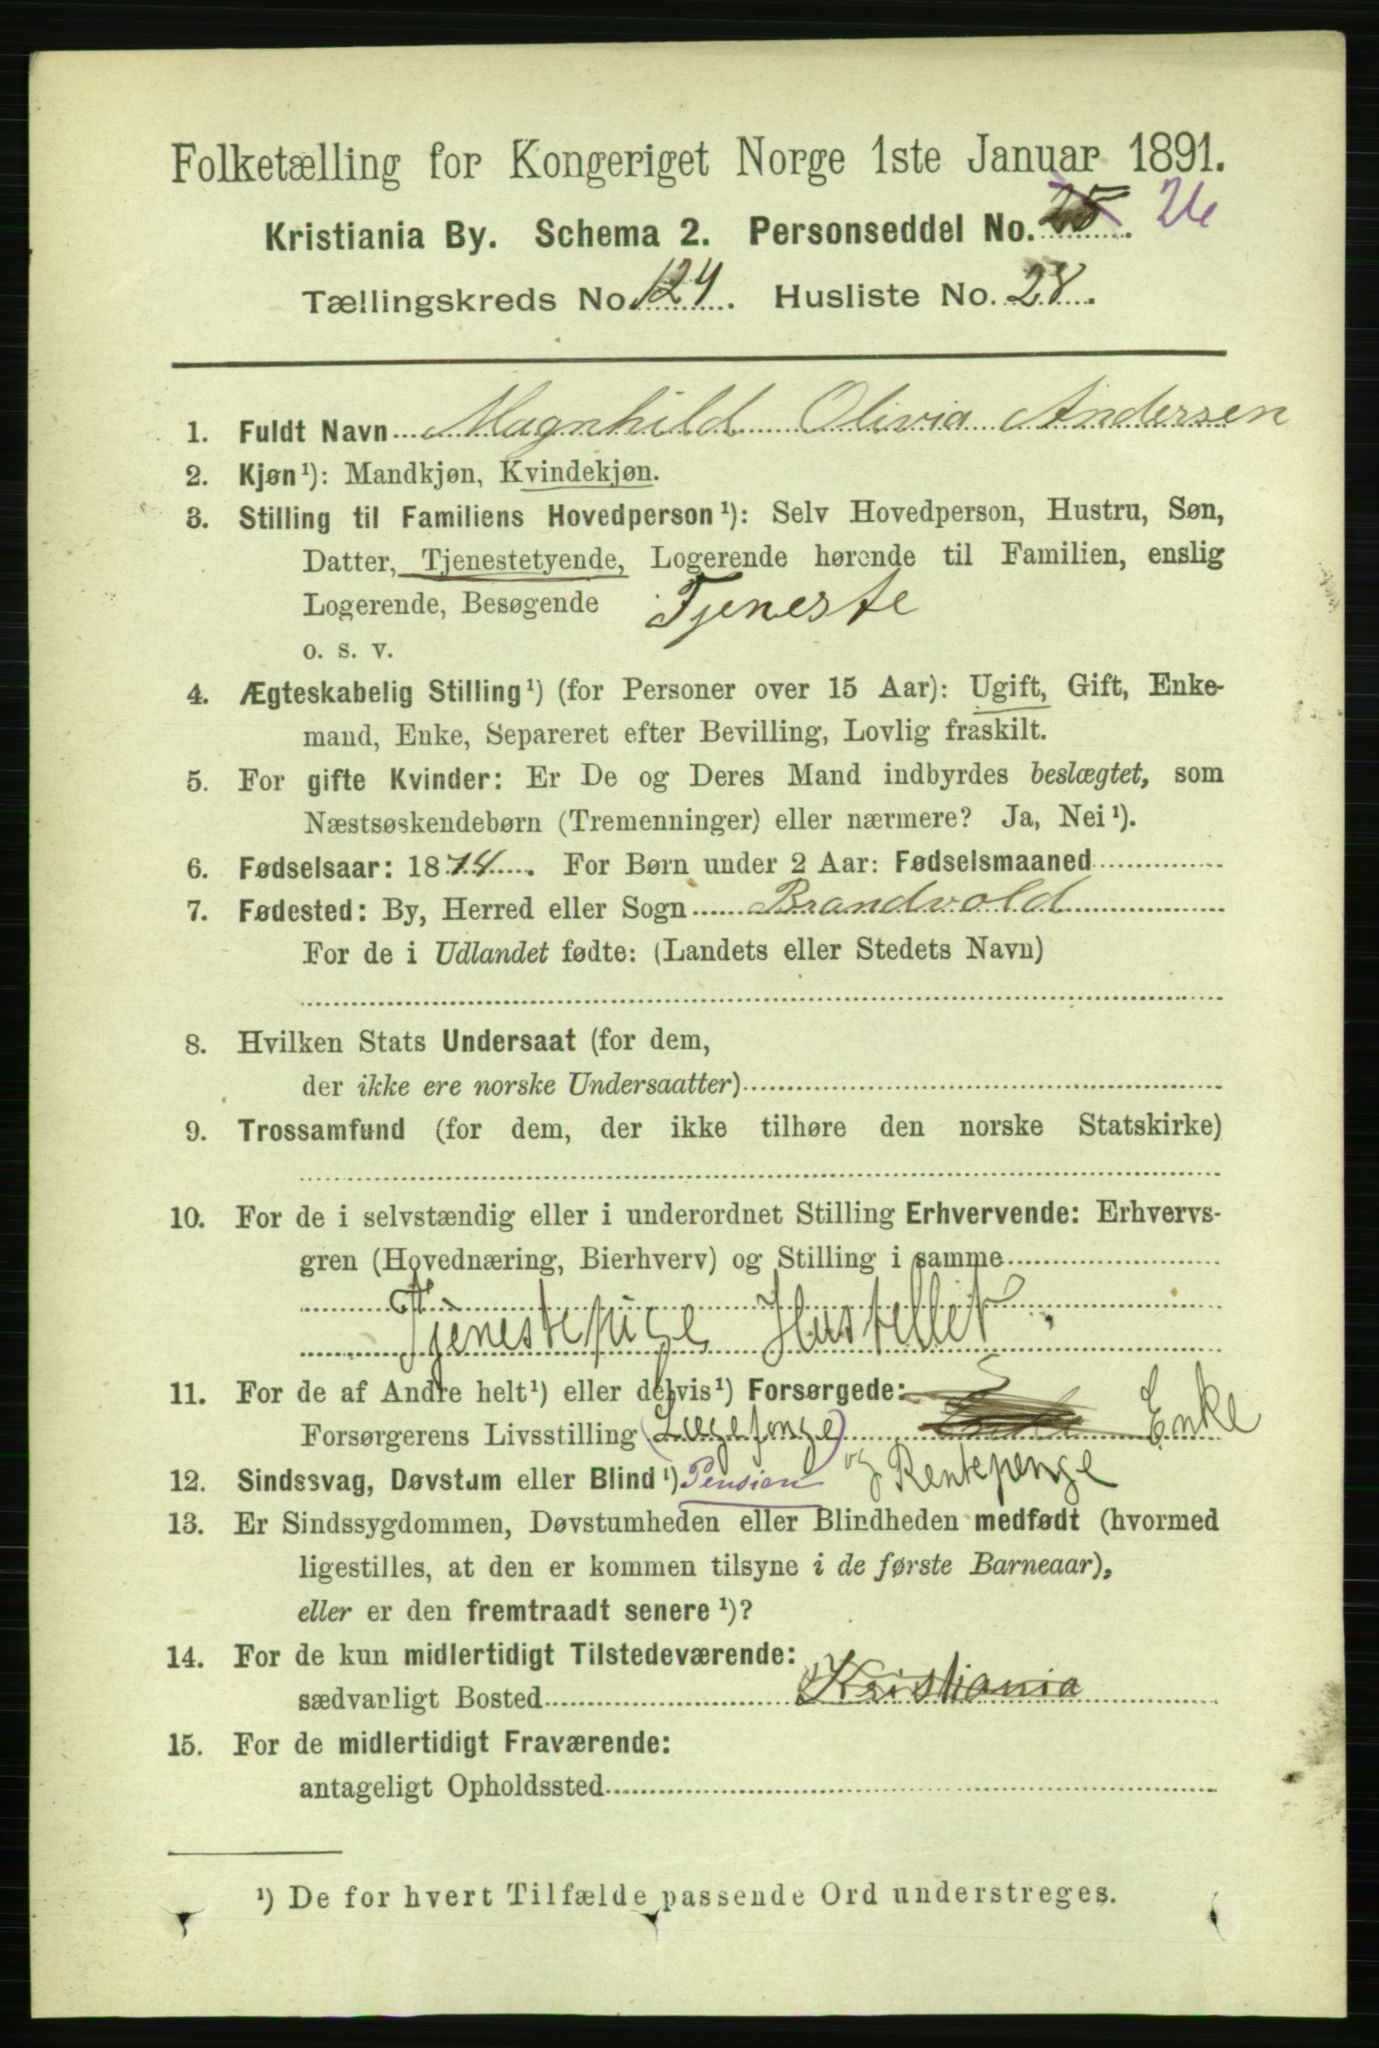 Folketælling for Kongeriget Norge 1ste Januar 1891.
Kristiania By. Schema 2. Personseddel No. 25. 26
Tællingskreds No. 124. Husliste No. 28.
1. Fuldt Navn Magnhild Olivia Andersen
2. Kjøn¹): Mandkjøn, Kvindekjøn.
3. Stilling til Familiens Hovedperson¹): Selv Hovedperson, Hustru, Søn,
Datter, Tjenestetyende, Logerende hørende til Familien, enslig
Logerende, Besøgende Tjeneste
o. s. v.
4. Ægteskabelig Stilling¹) (for Personer over 15 Aar): Ugift, Gift, Enke-
mand, Enke, Separeret efter Bevilling, Lovlig fraskilt.
5. For gifte Kvinder: Er De og Deres Mand indbyrdes beslægtet, som
Næstsøskendebørn (Tremenninger) eller nærmere? Ja, Nei¹).
6. Fødselsaar: 1874. For Børn under 2 Aar: Fødselsmaaned
7. Fødested: By, Herred eller Sogn Brandvold
For de i Udlandet fødte: (Landets eller Stedets Navn)
8. Hvilken Stats Undersaat (for dem,
der ikke ere norske Undersaatter)
9. Trossamfund (for dem, der ikke tilhøre den norske Statskirke)
10. For de i selvstændig eller i underordnet Stilling Erhvervende: Erhvervs-
gren (Hovednæring, Bierhverv) og Stilling i samme
Tjenestepige Hustellet.
11. For de af Andre helt¹) eller delvis¹) Forsørgede:
Forsørgerens Livsstilling Enke
12. Sindssvag, Døvstum eller Blind¹) Pension og Rentepenge
13. Er Sindssygdommen, Døvstumheden eller Blindheden medfødt (hvormed
ligestilles, at den er kommen tilsyne i de første Barneaar),
eller er den fremtraadt senere¹)?
14. For de kun midlertidigt Tilstedeværende:
sædvanligt Bosted Kristiania
15. For de midlertidigt Fraværende:
antageligt Opholdssted
¹) De for hvert Tilfælde passende Ord understreges.